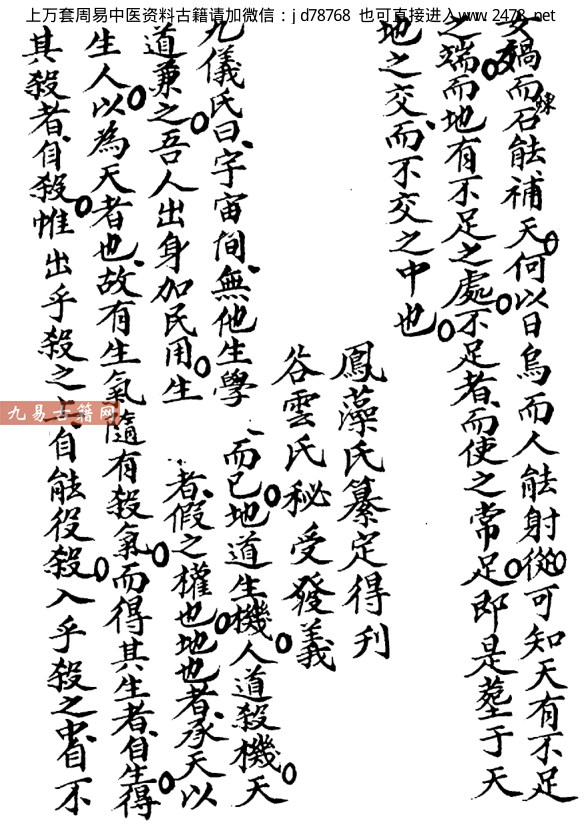 上万套周易中医资料古籍请加微信：jd78768 也可直接进入www.2478.net
女媧而石能補天何以日烏而人能射從可知天有不足
鍊
之端而地有不足之處不足者而使之常足即是塟于天
地之交而不交之中也
鳳藻氏纂定得刋
谷雲氏秘受發義
九儀氏曰字宙间無他生學而已地道生機人道殺機天
道兼之吾人出身加民用生者假之權也地也者承天以
生人以為天者也故有生氣隨有殺氣而得其生者自生得
其殺者自殺惟出乎殺之上自能役殺入乎殺之中自不
九易古籍网